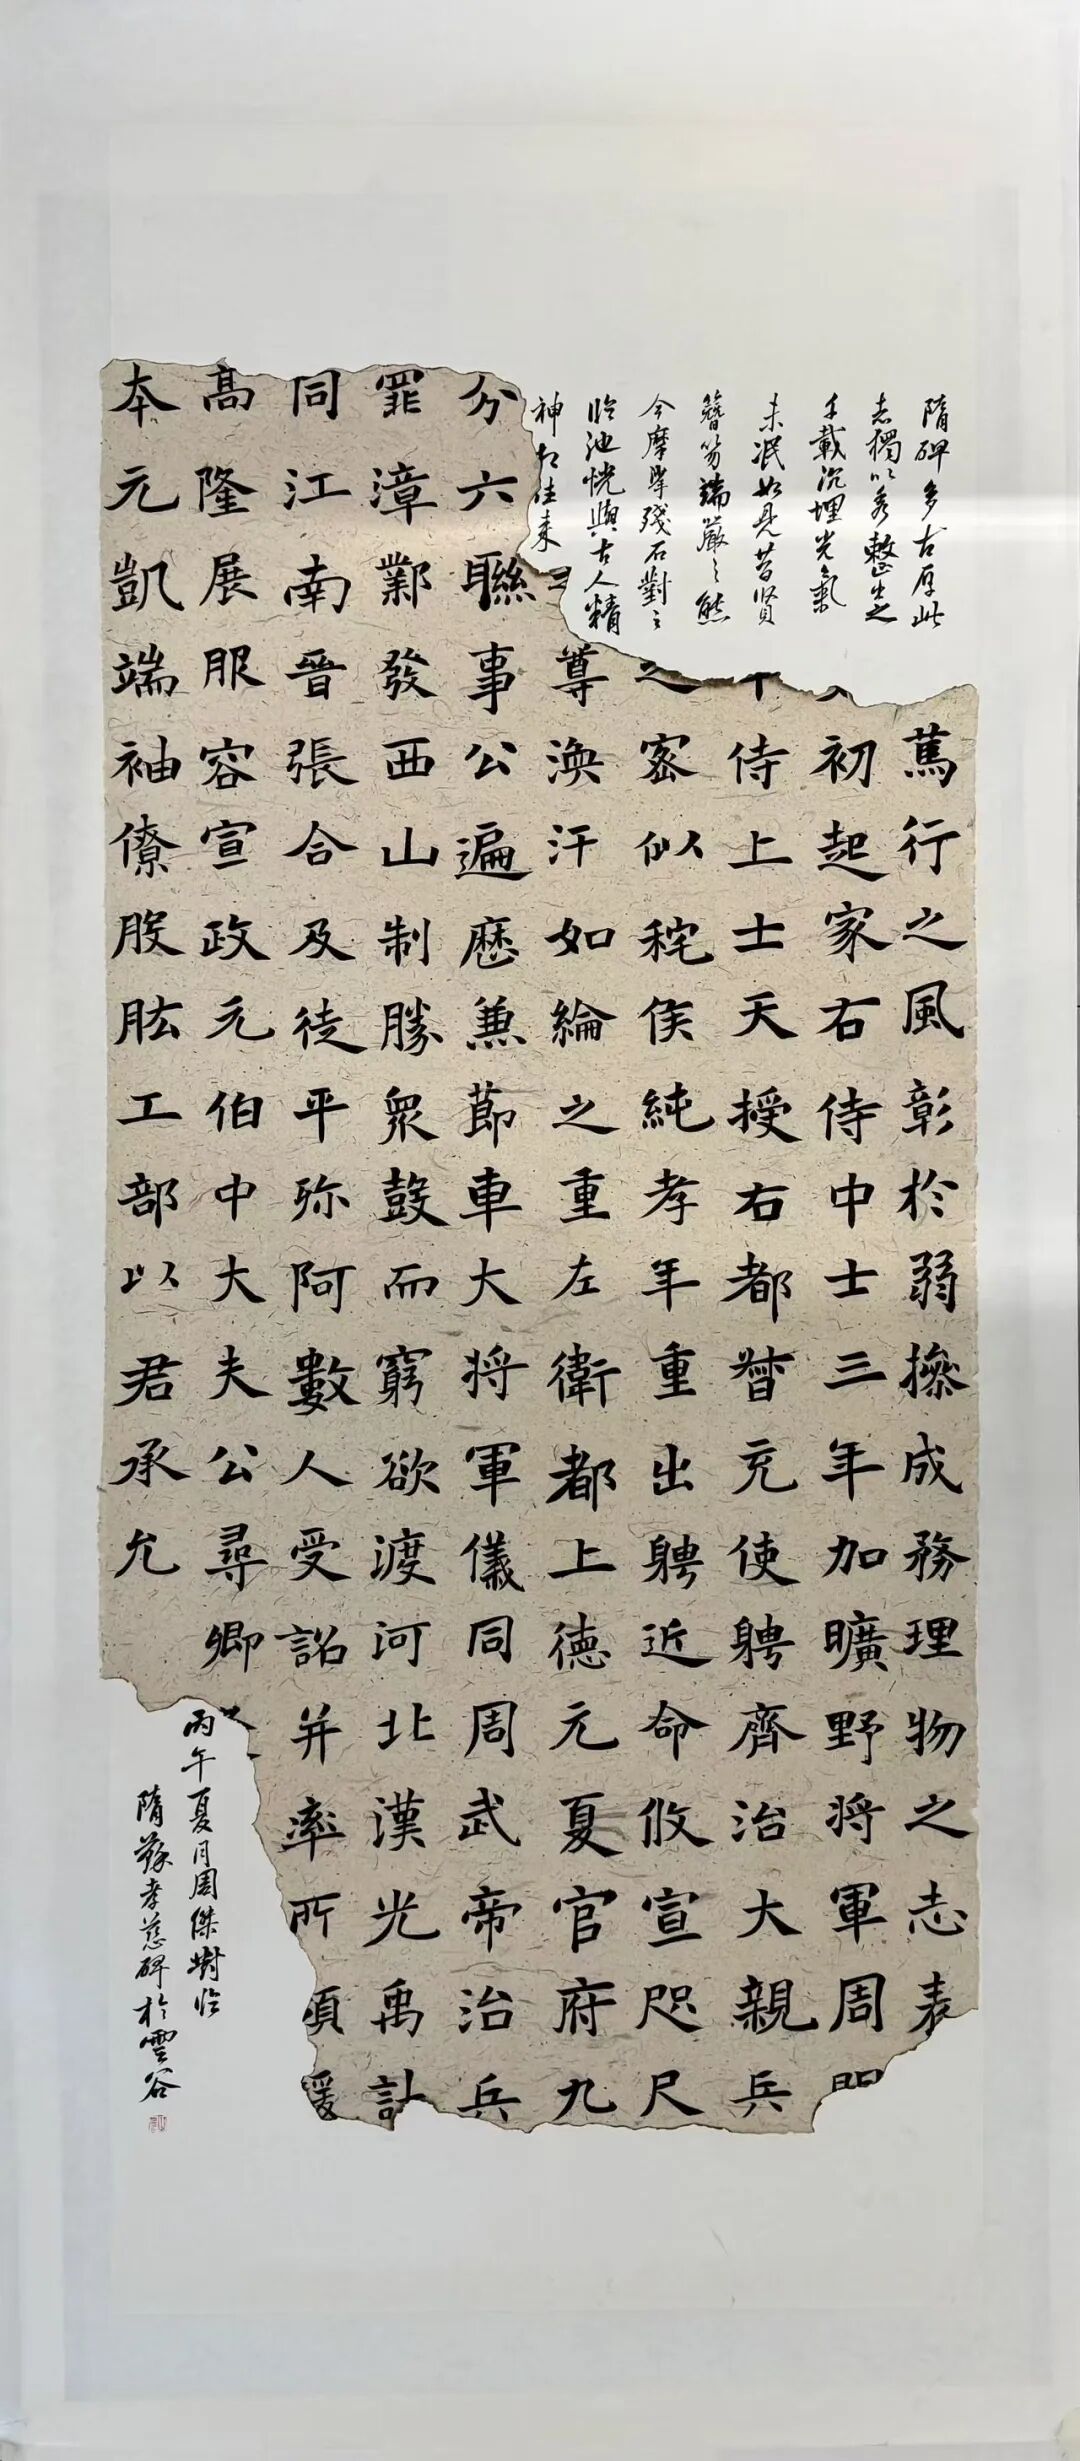 隋碑多古厚此
志獨以秀整出之
千載沉埋光氣
未泯如見昔賢
簪笏端嚴之態
今摩挲殘石對之
臨池恍與古人精
神相往来
蔦行之風彰於弱操成務理物之志表
初起家右侍中士三年加曠野將軍周
侍上士天授右都督充使聘齊治大親兵
之密似秺侯純孝年重出聘近命攸宣咫尺
尊渙汗如綸之重左衛都上德元夏官府九
分六聯事公遍歷兼莭車大將軍儀同周武帝治兵
罪漳鄴發西山制勝衆鼓而窮欲渡河北漢光禹計
同江南晉張合及徒平弥阿數人受詔并率所
高隆展服容宣政元伯中大夫公尋卿
本元凱端袖僚股肱工部以君承允
丙午夏月周傑對临
隋蘇孝慈碑於雲谷